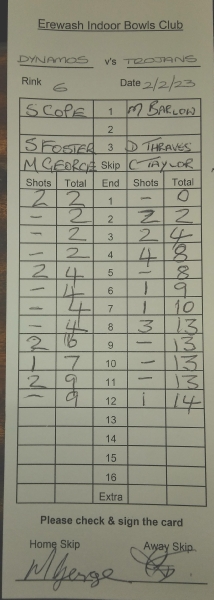 Erewash Indoor Bowls Club
DYNAMOS v's TROJANS
Rink 6 Date 2/2/23
S COPE 1 M BARLOW
2
S FOSTER 3 D THRAVES
M GEORGE Skip C TAYLOR
Shots Total End Shots Total
2 2 1 - 0
- 2 2 2 2
- 2 3 2 4
- 2 4 4 8
2 4 5 - 8
- 4 6 1 9
- 4 7 1 10
- 4 8 3 13
2 6 9 - 13
1 7 10 - 13
2 9 11 - 13
- 9 12 1 14
13
14
15
16
Extra
Please check & sign the card
Home Skip Away Skip
M George